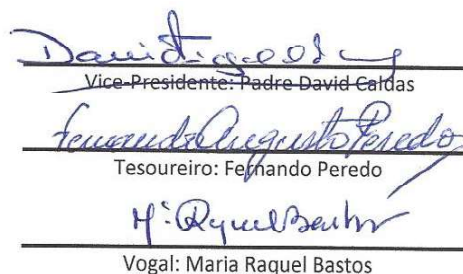 Vice-Presidente: Padre David Caldas
Fernando Augusto Peredo
Tesoureiro: Fernando Peredo
Mª Raquel Bastos
Vogal: Maria Raquel Bastos